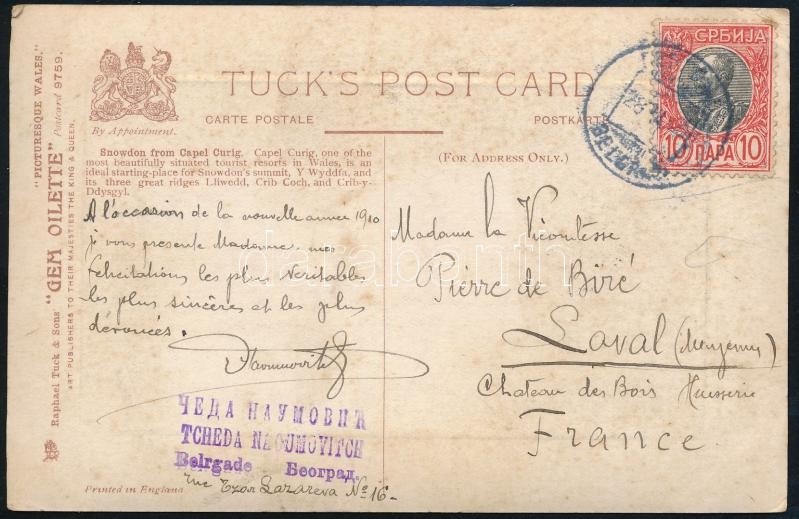 Raphael Tuck & Sons' "GEM OILETTE" Postcard 9759.
"PICTURESQUE WALES."
ART PUBLISHERS TO THEIR MAJESTIES THE KING & QUEEN.
By Appointment.
TUCK'S POST CARD
CARTE POSTALE
POSTKARTE
Snowdon from Capel Curig. Capel Curig, one of the
most beautifully situated tourist resorts in Wales, is an
ideal starting-place for Snowdon's summit, Y Wyddfa, and
its three great ridges Lliwedd, Crib Coch, and Crib-y-
Ddysgyl.
(FOR ADDRESS ONLY.)
СРБИЈА
10 ПАРА 10
A l'occasion de la nouvelle année 1910
je vous presente Madame mes
felicitations les plus veritables
les plus sincères et les plus
dévouées.
Madame la Vicomtesse
Pierre de Biré
Laval (Mayenne)
Chateau des Bois Huisserie
France
ЧЕДА НАУМОВИЋ
TCHEDA NAOUMOVITCH
Belrgade Београд.
rue Tzar Lazareva No 16-
Printed in England
darabanth